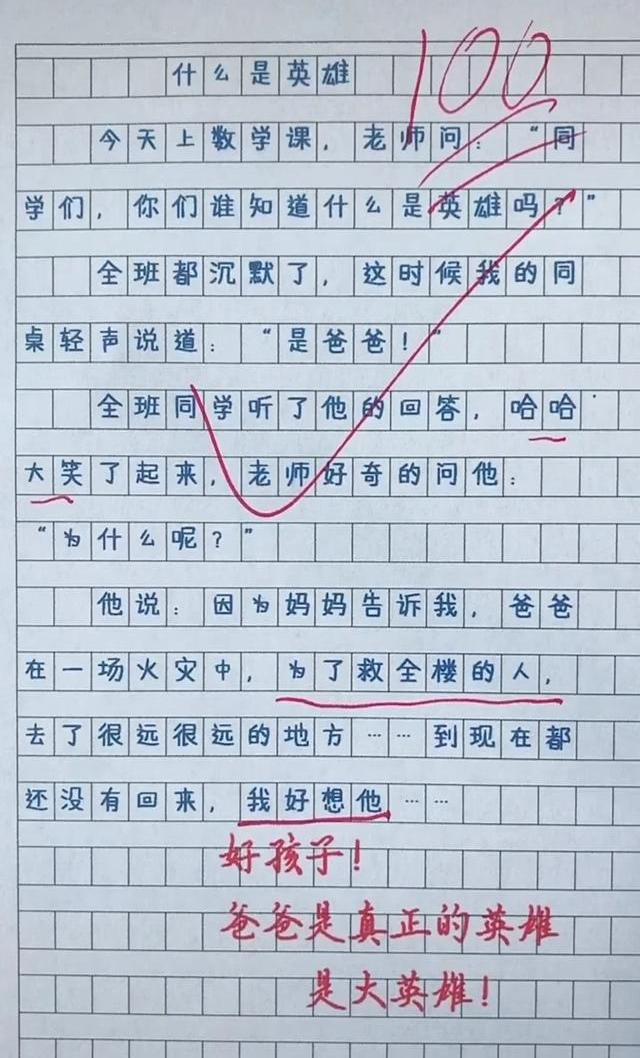 100
什么是英雄
今天上数学课，老师问：“同
学们，你们谁知道什么是英雄吗？”
全班都沉默了，这时候我的同
桌轻声说道：“是爸爸！”
全班同学听了他的回答，哈哈
大笑了起来，老师好奇的问他：
“为什么呢？”
他说：因为妈妈告诉我，爸爸
在一场火灾中，为了救全楼的人，
去了很远很远的地方……到现在都
还没有回来，我好想他……
好孩子！
爸爸是真正的英雄
是大英雄！